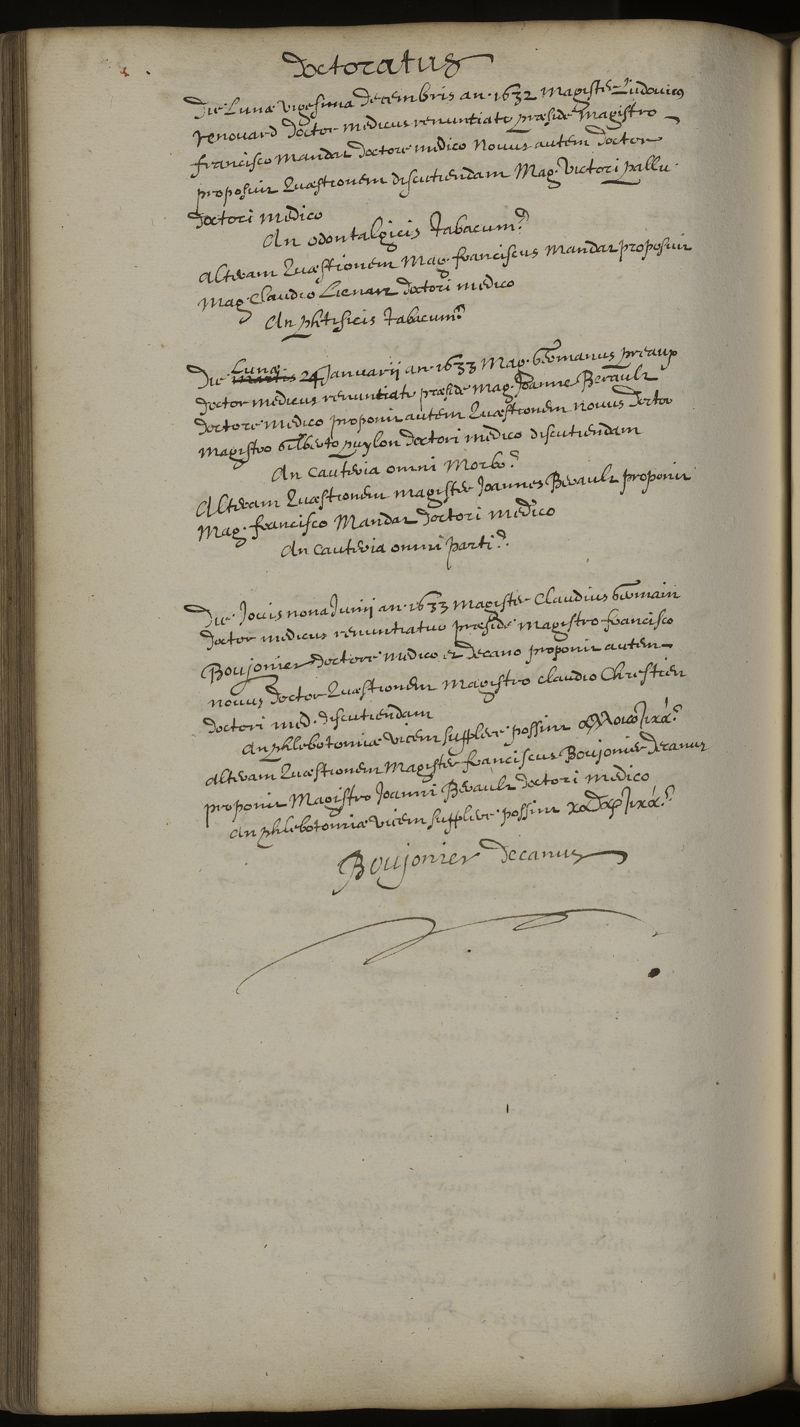 Doctoratus
Die Lunæ vigesima decembris an. 1632 Magister Ludovicus
Renouard doctor medicus renuntiatʳ præside magistro
francisco Mandat doctore medico Novus autem doctor
proposuit quæstionem discutiendam Mag. Victori pallu
doctori medico
An odontalgicis Tabacum?
Alteram quæstionem Mag. franciscus Mandat proposuit
Mag. Claudio Lienart doctori medico
An phtisicis Tabacum?
Die Lunæ 24 Januarij an. 1633 Mag. Germanus preaux
doctor medicus renuntiatʳ præside Mag. Joanne Berault
doctore medico proponit autem quæstionem novus doctor
magistro Gilberto puylon doctori medico discutiendam
An cauteria omni Morbo?
Alteram quæstionem magister Joannes Berault proponit
Mag. francisco Mandat doctori medico
An cauteria omni parti?
Die Jovis nona Junij an. 1633 Magister Claudius Germain
doctor medicus renuntiatur præside magistro francisco
Boujonier doctore medico et decano proponit autem
novus doctor quæstionem Magistro claudio Chrestien
doctori med. discutiendam
An phlebotomiæ vicem supplere possint ἀλλοιωτικά?
Alteram quæstionem Magister franciscus Boujonier decanus
proponit Magistro Joanni Berault doctori medico
An phlebotomiæ vicem supplere possint καθαρτικά?
Boujonier decanus